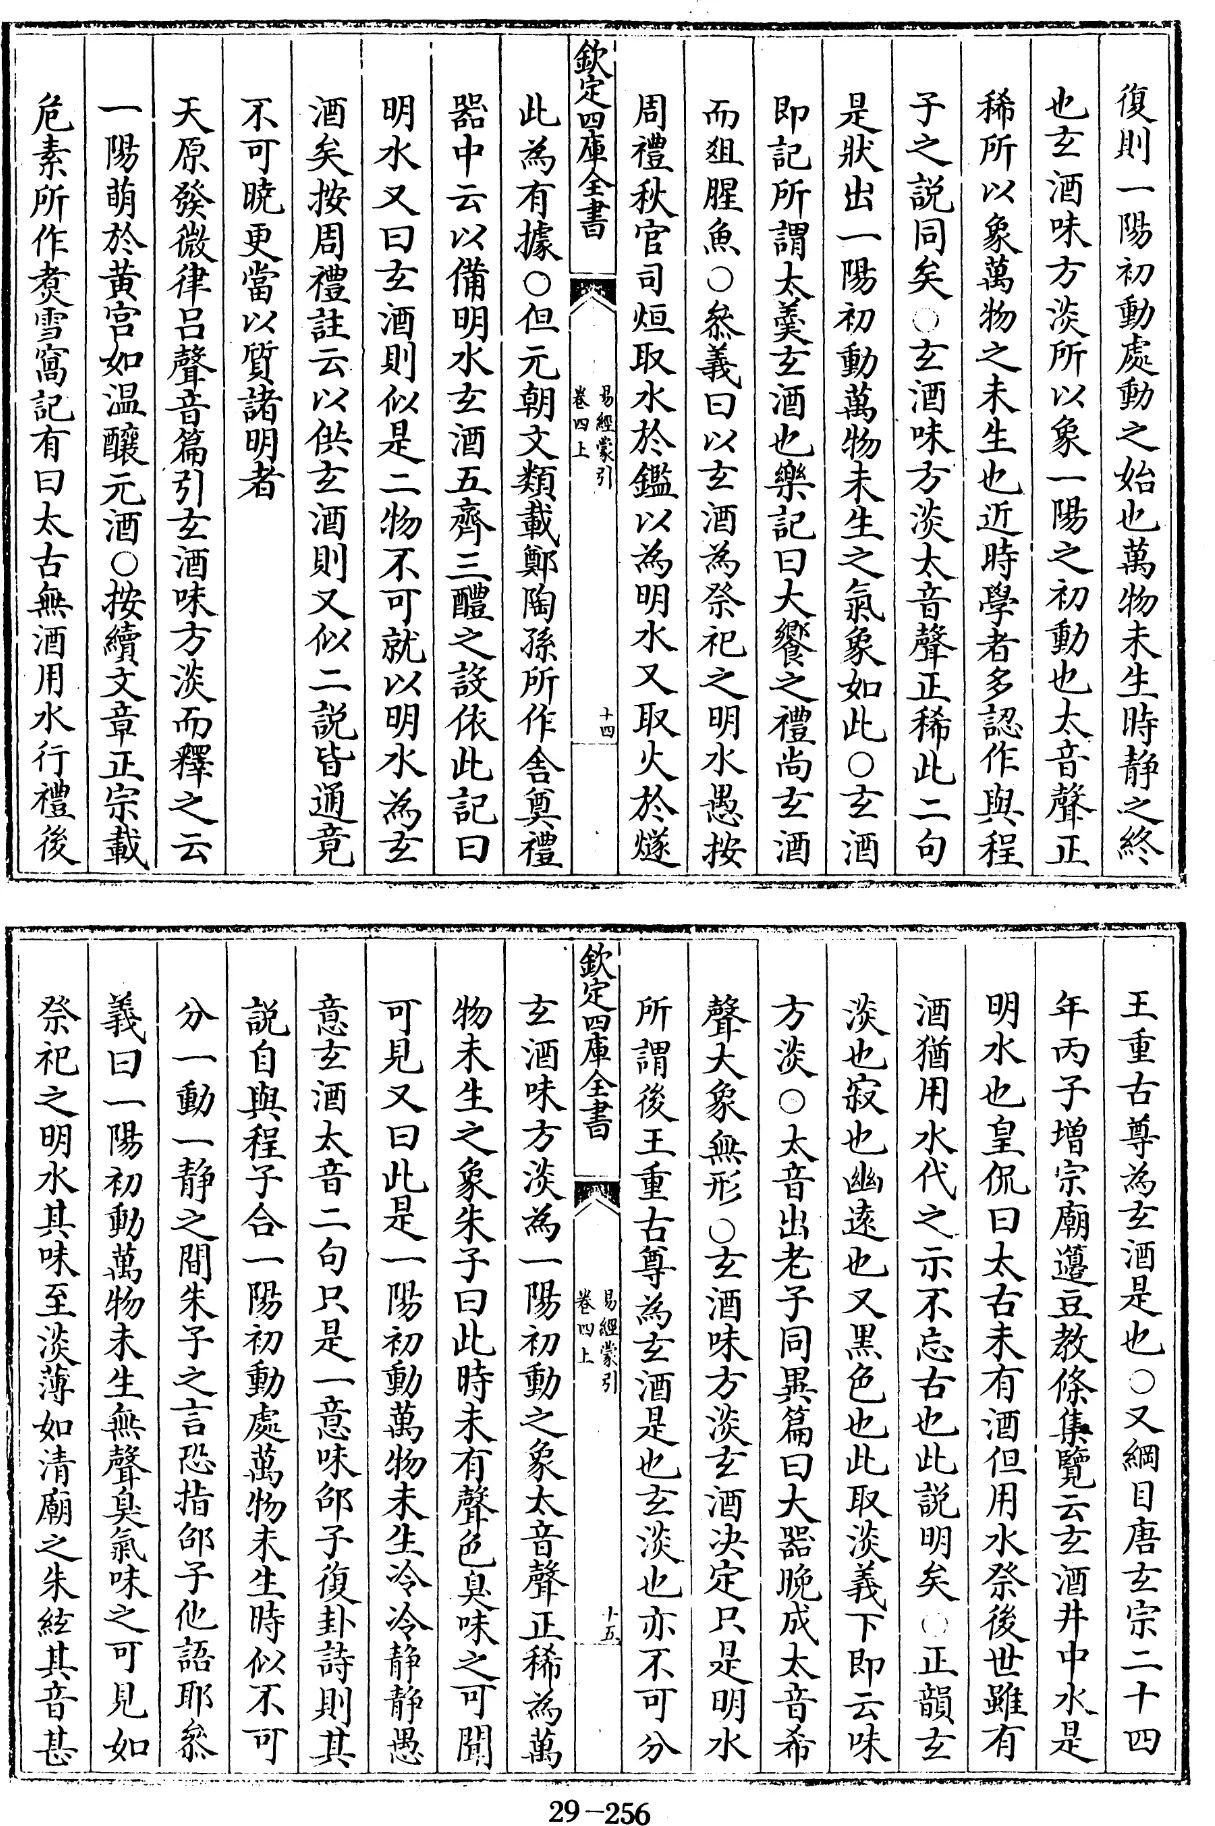 復則一陽初動處動之始也萬物未生時静之終
也玄酒味方淡所以象一陽之初動也太音聲正
稀所以象萬物之未生也近時學者多認作與程
子之説同矣○玄酒味方淡太音聲正稀此二句
是狀出一陽初動萬物未生之氣象如此○玄酒
即記所謂太羮玄酒也樂記曰大饗之禮尚玄酒
而俎腥魚○叅義曰以玄酒為祭祀之明水愚按
周禮秋官司烜取水於鑑以為明水又取火於燧
欽定四庫全書
易經蒙引
卷四上
十四
此為有據○但元朝文類載鄭陶孫所作舍奠禮
器中云以備明水玄酒五齊三醴之設依此記曰
明水又曰玄酒則似是二物不可就以明水為玄
酒矣按周禮註云以供玄酒則又似二説皆通竟
不可曉更當以質諸明者
天原發微律吕聲音篇引玄酒味方淡而釋之云
一陽萌於黄宫如温釀元酒○按續文章正宗載
危素所作煑雪窩記有曰太古無酒用水行禮後
王重古尊為玄酒是也○又綱目唐玄宗二十四
年丙子增宗廟籩豆教條集覽云玄酒井中水是
明水也皇侃曰太古未有酒但用水祭後世雖有
酒猶用水代之示不忘古也此説明矣○正韻玄
淡也寂也幽遠也又黑色也此取淡義下即云味
方淡○太音出老子同異篇曰大器晚成太音希
聲大象無形○玄酒味方淡玄酒决定只是明水
所謂後王重古尊為玄酒是也玄淡也亦不可分
欽定四庫全書
易經蒙引
卷四上
十五
玄酒味方淡為一陽初動之象太音聲正稀為萬
物未生之象朱子曰此時未有聲色臭味之可聞
可見又曰此是一陽初動萬物未生冷冷静静愚
意玄酒太音二句只是一意味邵子復卦詩則其
説自與程子合一陽初動處萬物未生時似不可
分一動一静之間朱子之言恐指邵子他語耶叅
義曰一陽初動萬物未生無聲臭氣味之可見如
祭祀之明水其味至淡薄如清廟之朱絃其音甚
29-256